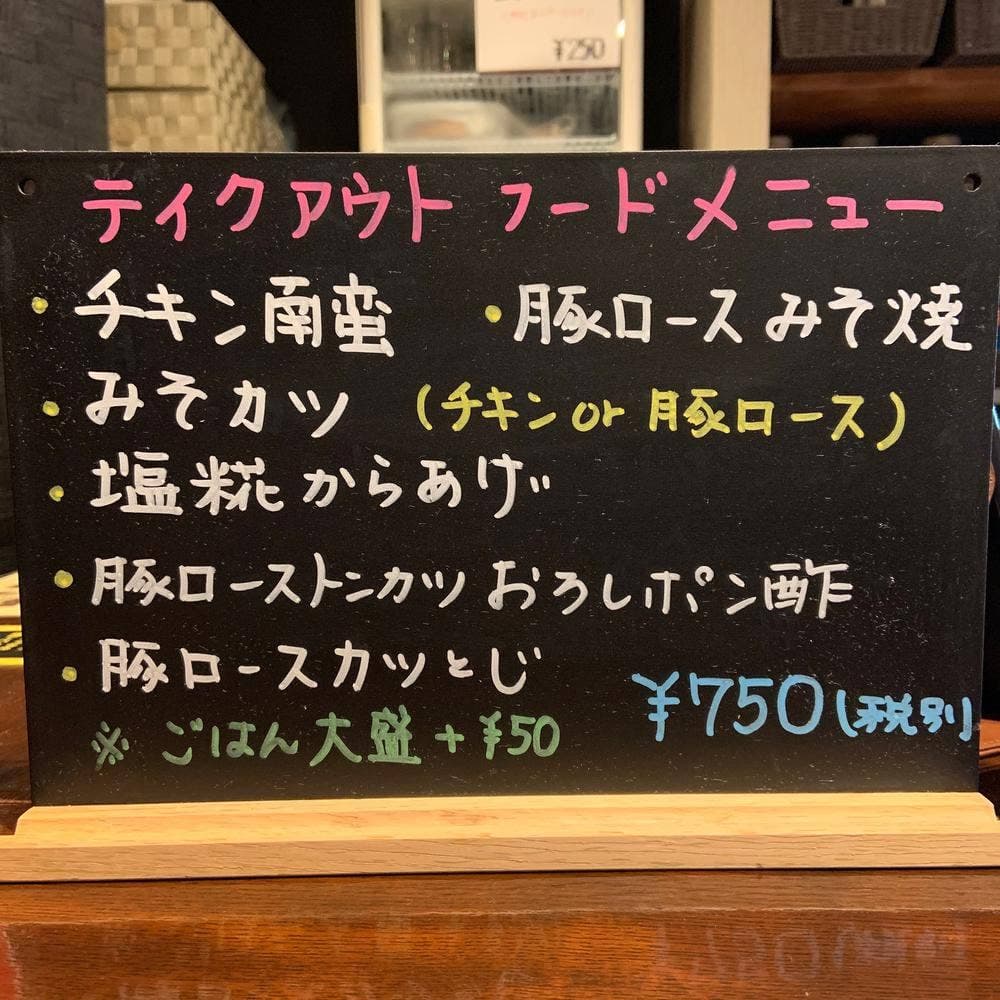 ¥250
ティクアウト フードメニュー
・チキン南蛮 ・豚ロースみそ焼
・みそカツ (チキンor豚ロース)
・塩糀からあげ
・豚ローストンカツ おろしポン酢
・豚ロースカツとじ
¥750(税別)
※ ごはん大盛+¥50